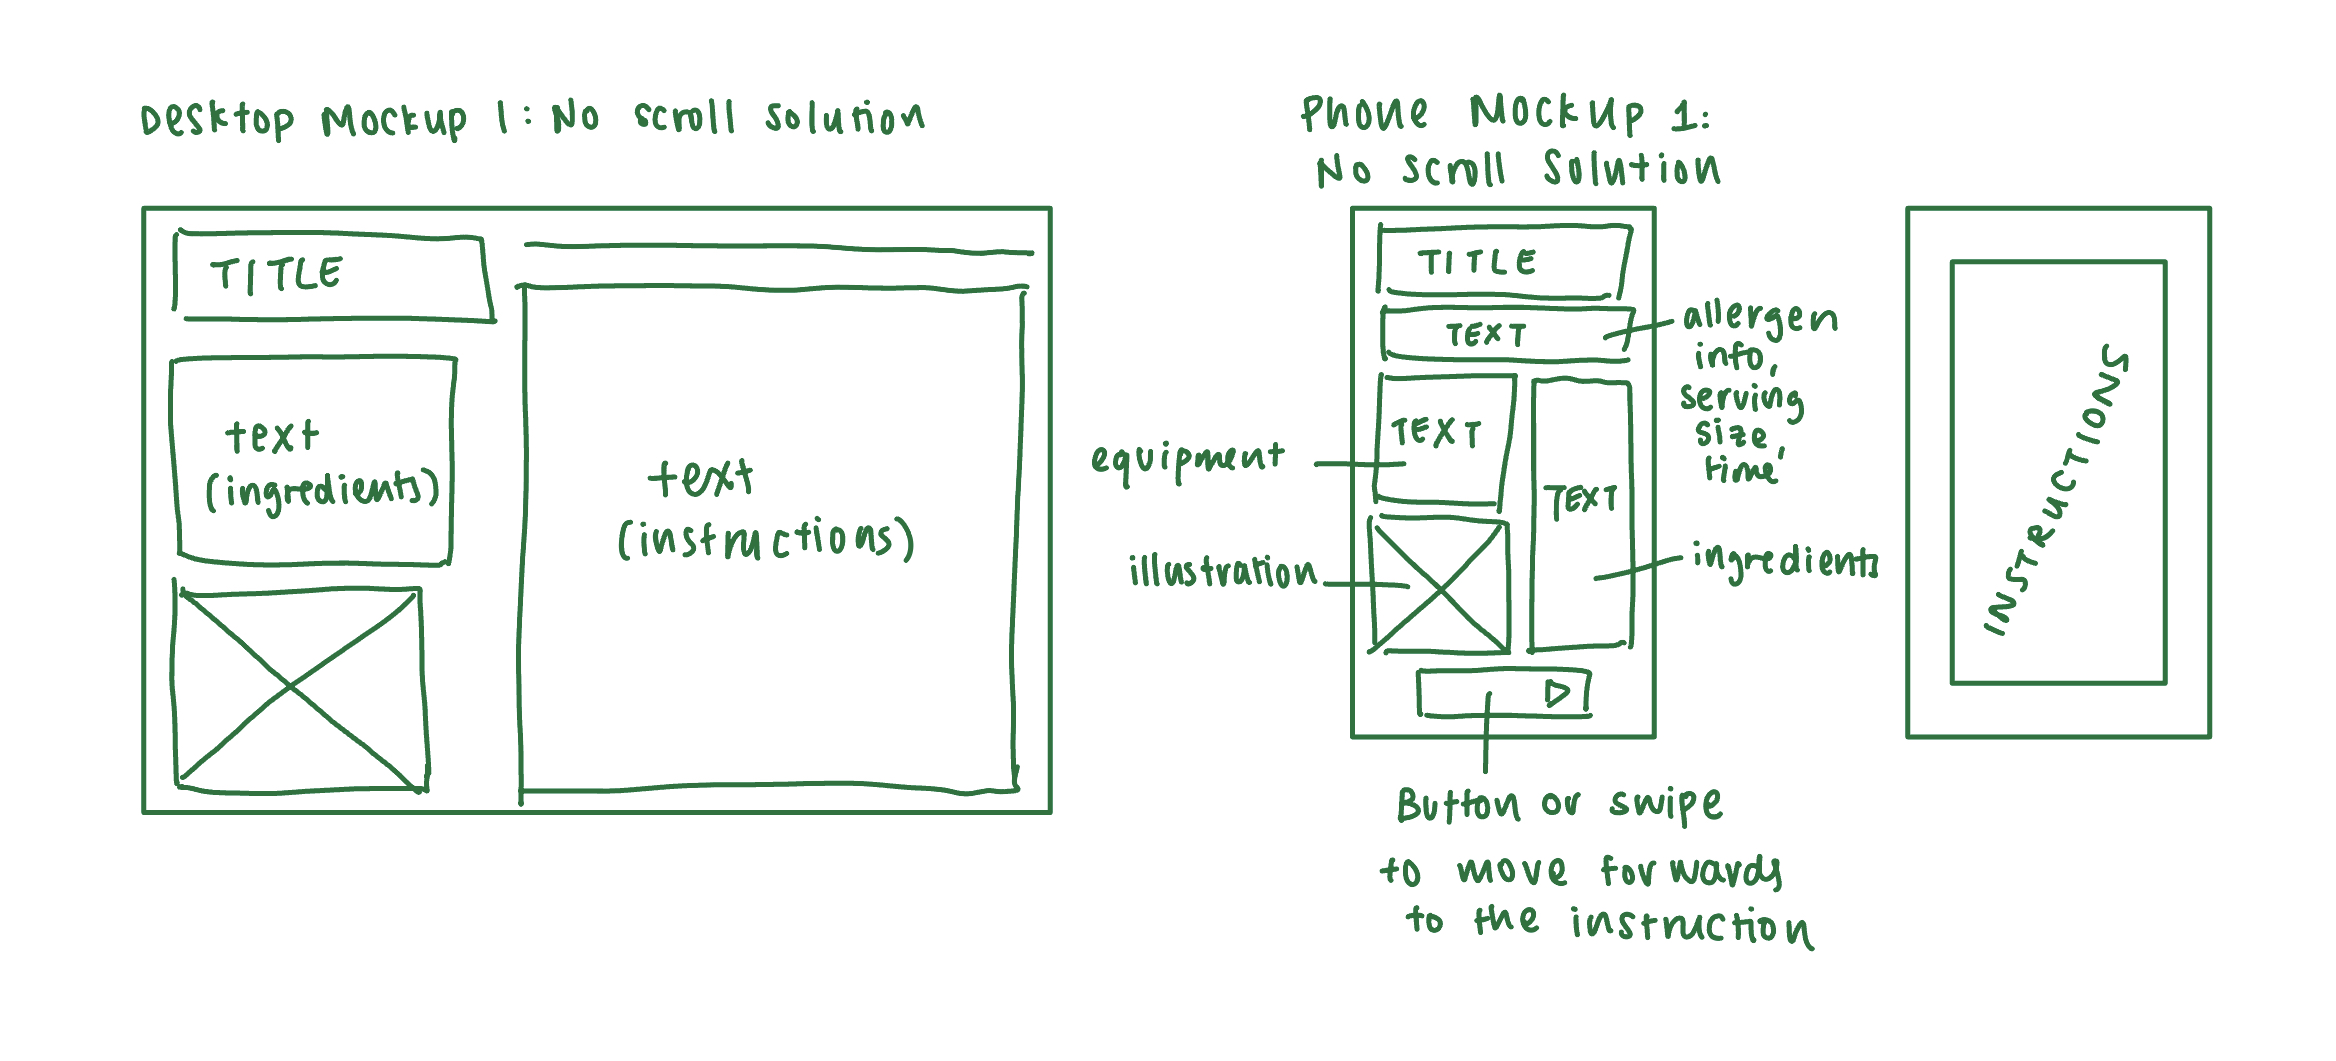 Desktop Mockup 1: No scroll solution
TITLE
text
(ingredients)
text
(instructions)
Phone Mockup 1:
No scroll Solution
TITLE
TEXT
allergen
info,
serving
size,
time
TEXT
equipment
TEXT
illustration
ingredients
Button or swipe
to move forwards
to the instruction
INSTRUCTIONS